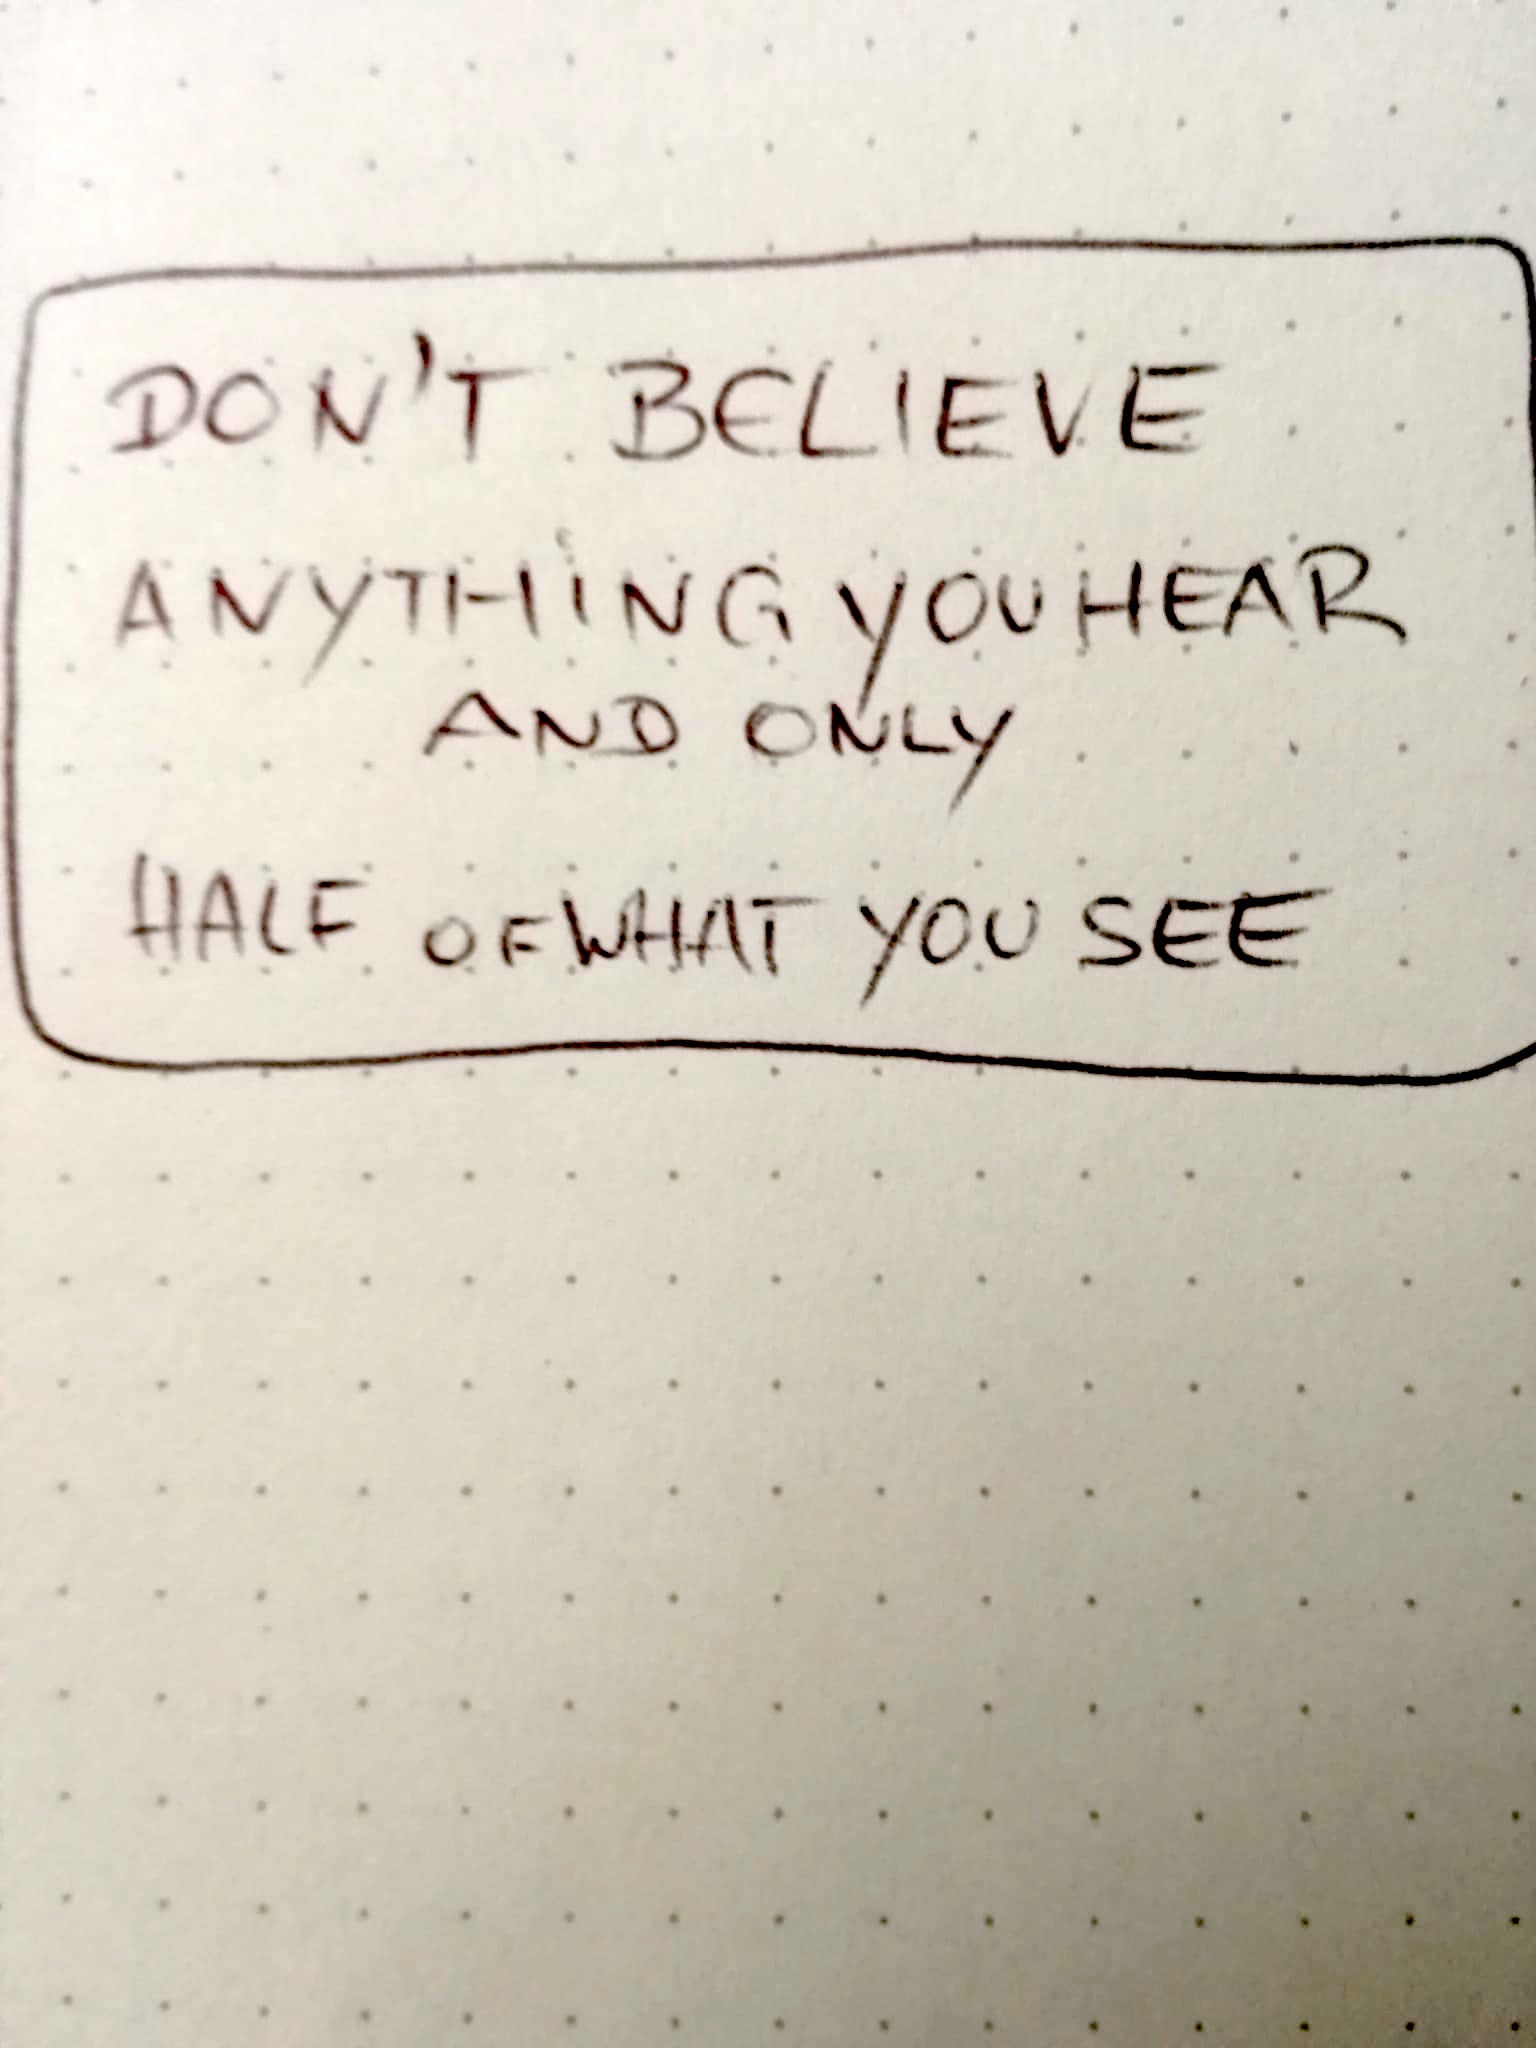 DON'T BELIEVE
ANYTHING YOU HEAR
AND ONLY
HALF OF WHAT YOU SEE